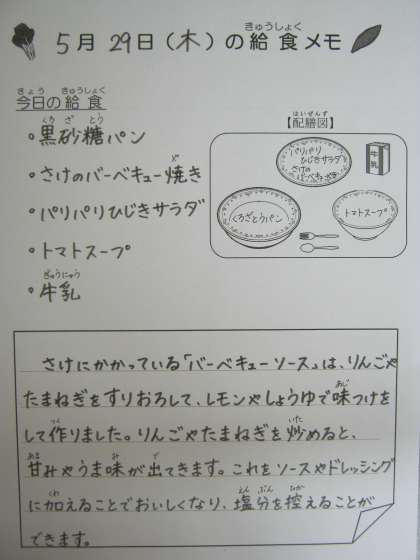 5月29日(木)の給食メモ
きゅうしょく
今日の給食
きょう きゅうしょく
・黒砂糖パン
くろざとう
・さけのバーベキュー焼き
や
・パリパリひじきサラダ
・トマトスープ
・牛乳
ぎゅうにゅう
【配膳図】
はいぜんず
パリパリ
ひじきサラダ
さけの
バーベキュー焼き
牛乳
くろざとうパン
トマトスープ
さけにかかっている「バーベキューソース」は、りんごや
たまねぎをすりおろして、レモンやしょうゆで味つけを
あじ
して作りました。りんごやたまねぎを炒めると、
つく いた
甘みやうま味が出てきます。これをソースやドレッシング
あま み で
に加えることでおいしくなり、塩分を控えることが
くわ えん ぶん ひか
できます。